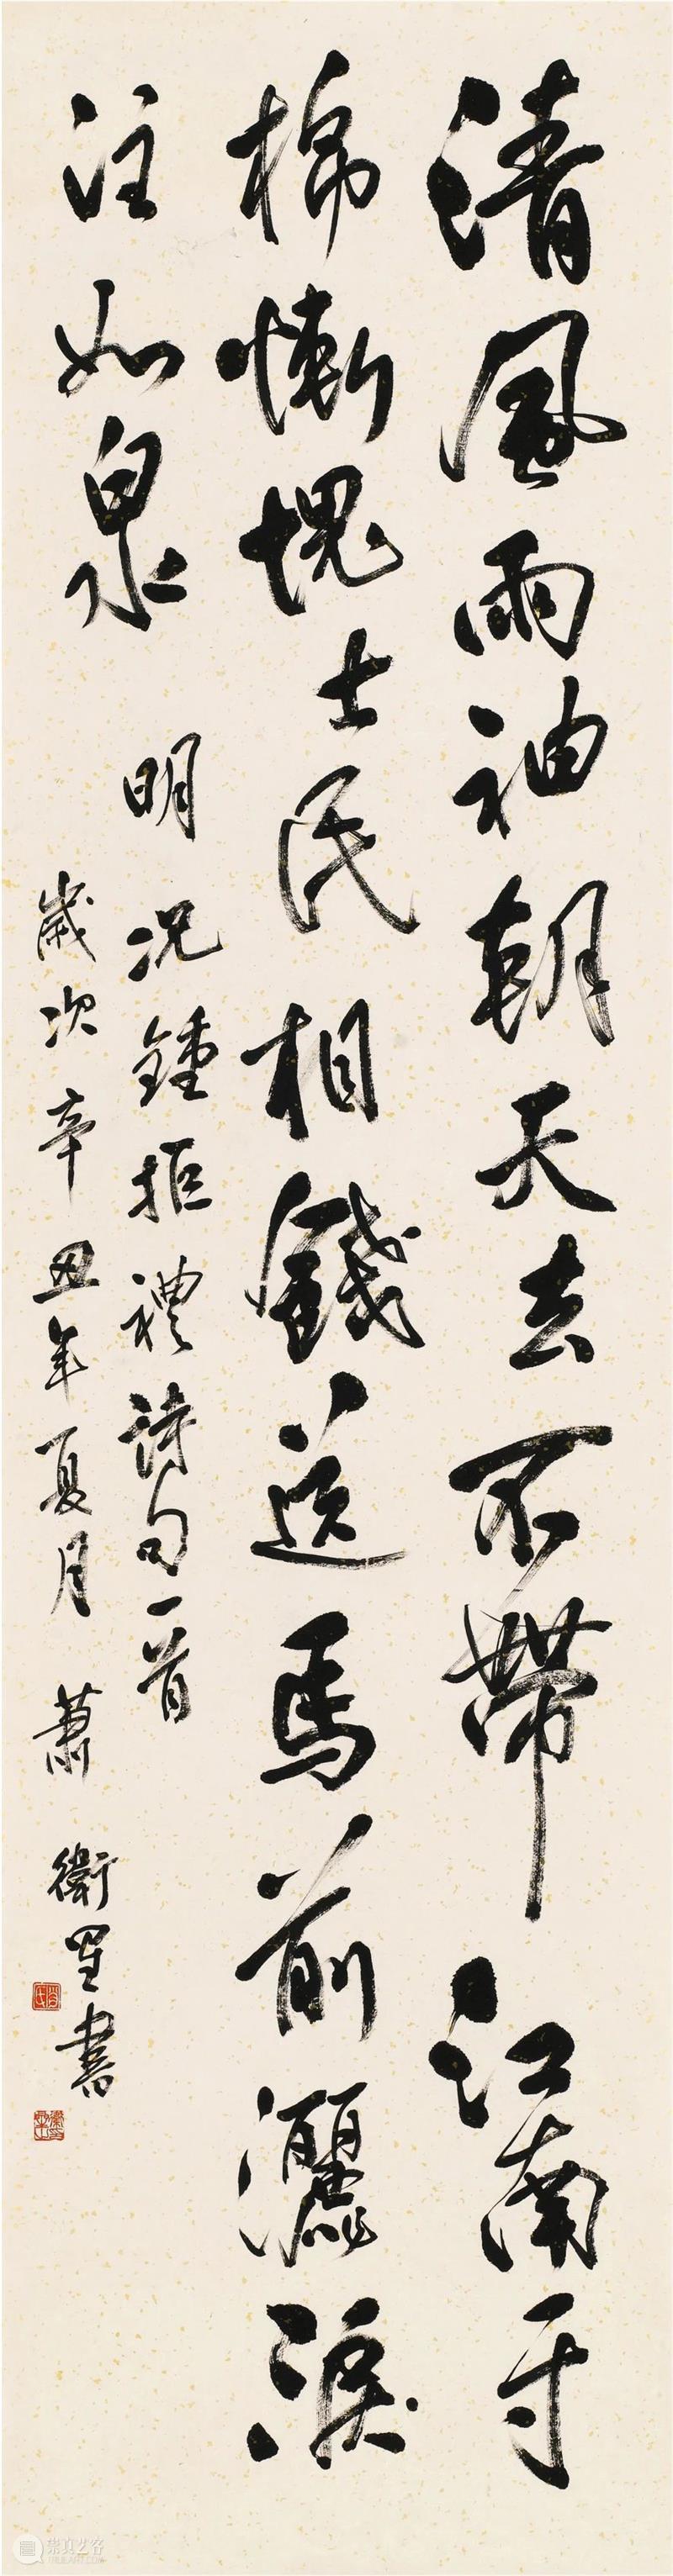 清風兩袖朝天去不帶江南寸
棉慚愧士民相餞送馬前灑淚
注如泉
明况鍾拒禮詩句一首
歲次辛丑年夏月蕭衛星書
崇真艺客